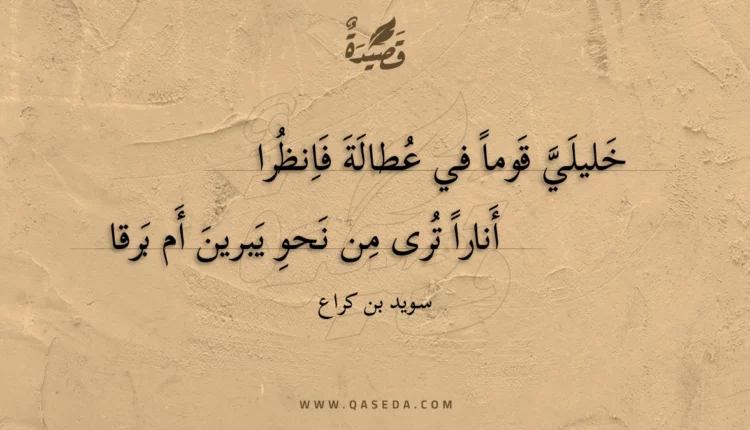 قَصيدَةٌ
خَليلَيَّ قَوماً في عُطالَةَ فَاِنظُرا
أَناراً تُرى مِن نَحوِ يَبرينَ أَم بَرقا
سويد بن كراع
WWW.QASEDA.COM